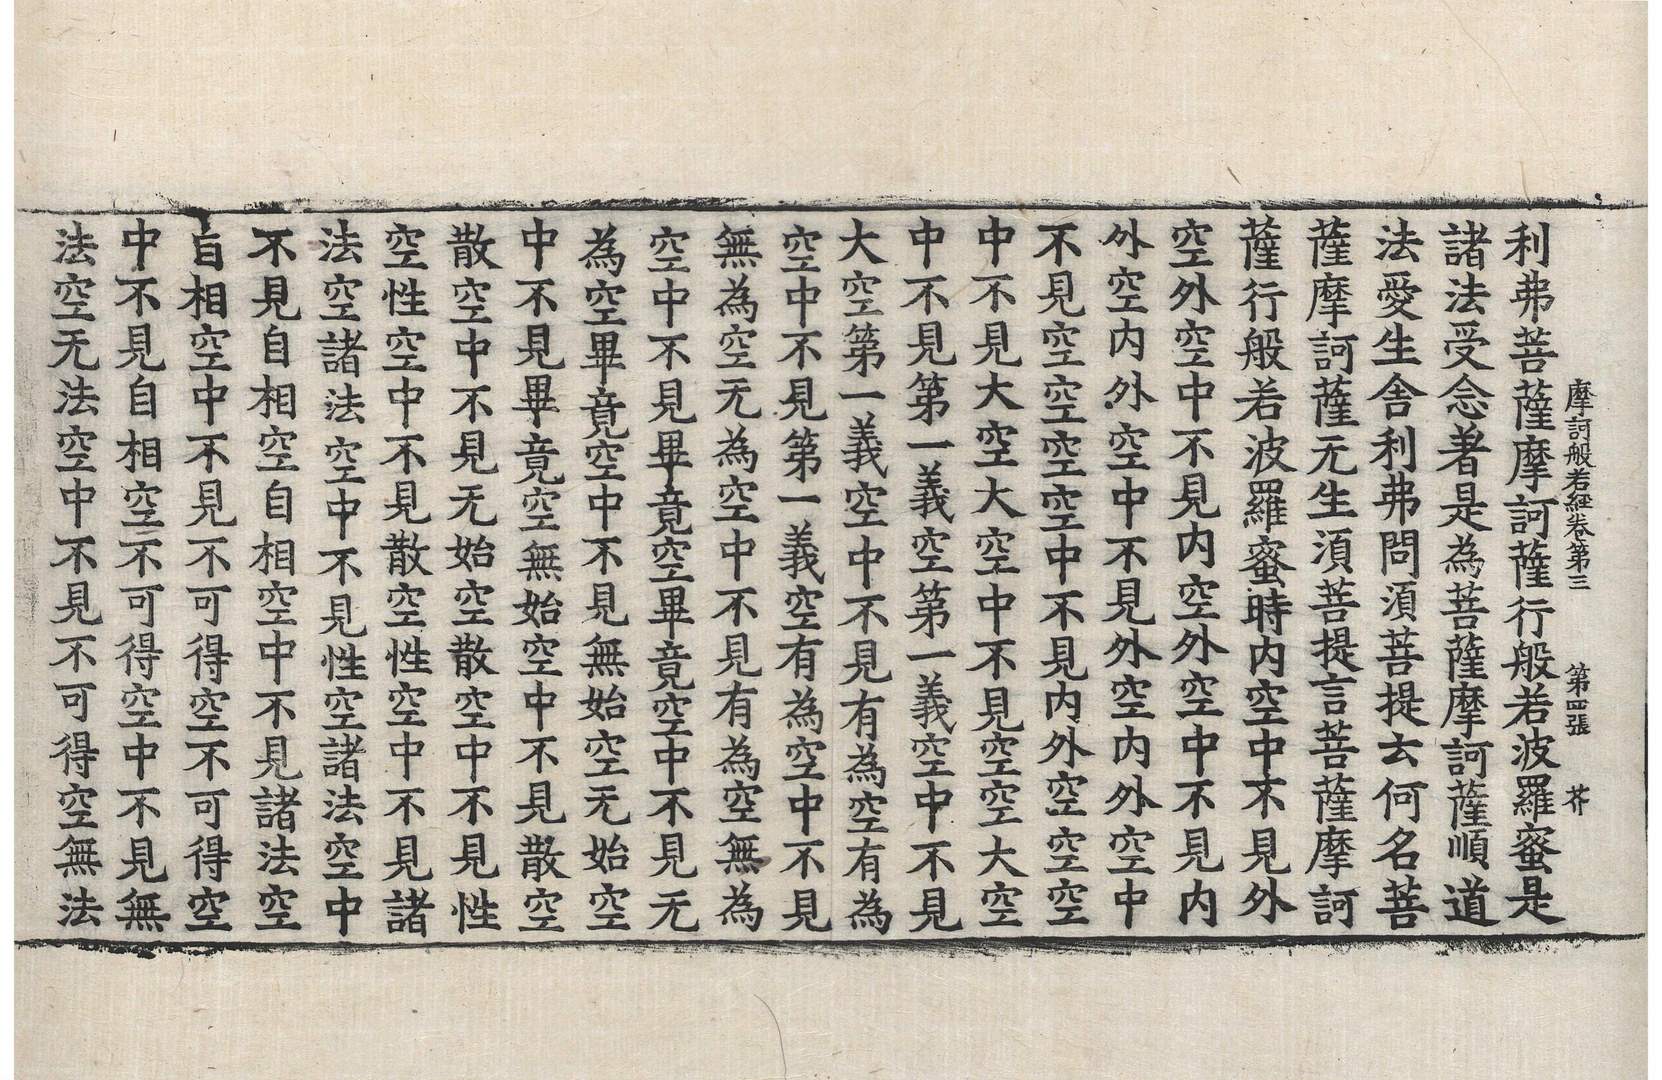 摩訶般若經卷第三 第四張 芥
利弗菩薩摩訶薩行般若波羅蜜是
諸法受念著是為菩薩摩訶薩順道
法愛生舍利弗問湏菩提云何名菩
薩摩訶薩无生湏菩提言菩薩摩訶
薩行般若波羅蜜時内空中不見外
空外空中不見内空外空中不見内
外空内外空中不見外空内外空中
不見空空空空中不見内外空空空
中不見大空大空中不見空空大空
中不見第一義空第一義空中不見
大空第一義空中不見有為空有為
空中不見第一義空有為空中不見
無為空无為空中不見有為空無為
空中不見畢竟空畢竟空中不見无
為空畢竟空中不見無始空无始空
中不見畢竟空無始空中不見散空
散空中不見无始空散空中不見性
空性空中不見散空性空中不見諸
法空諸法空中不見性空諸法空中
不見自相空自相空中不見諸法空
自相空中不見不可得空不可得空
中不見自相空不可得空中不見無
法空无法空中不見不可得空無法